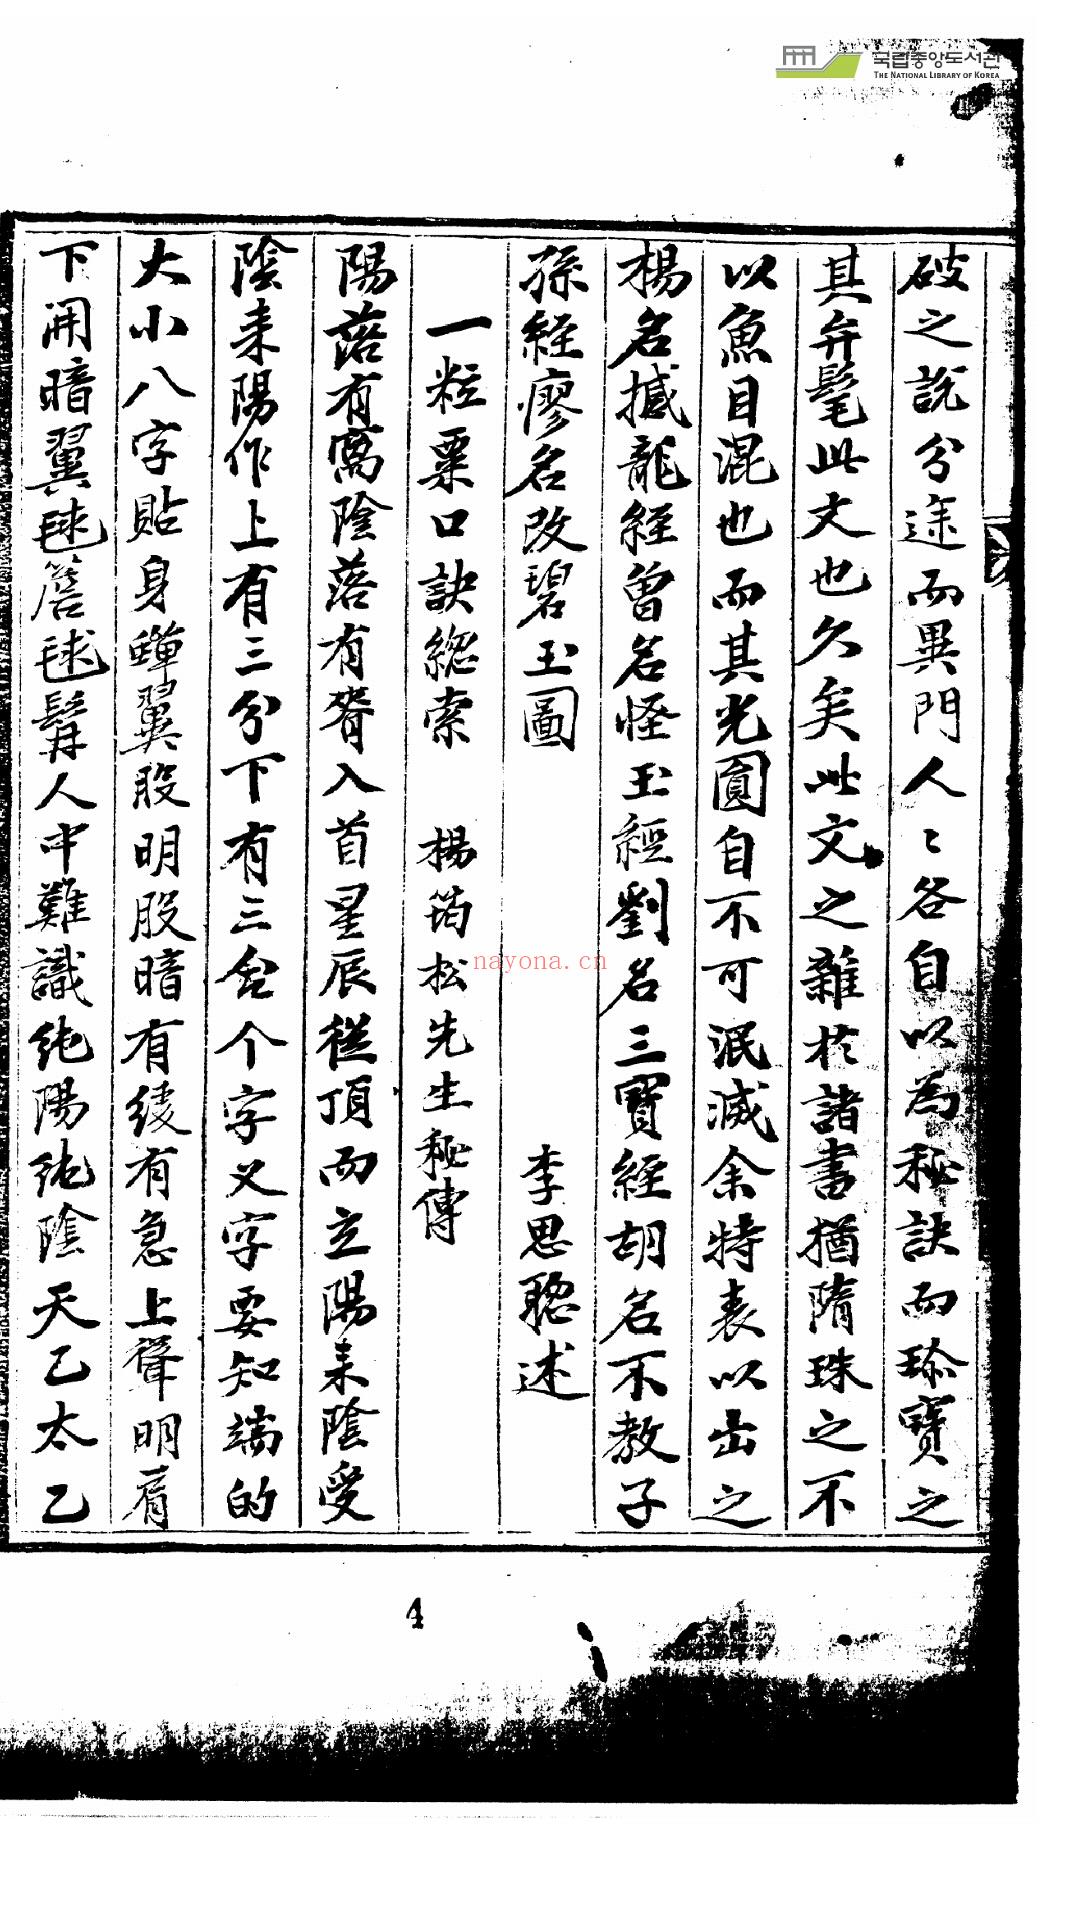 국립중앙도서관
THE NATIONAL LIBRARY OF KOREA
破之說分途而異門人〻各自以為秘訣而珎寶之
其弁髦此文也久矣此文之雜於諸書猶隋珠之不
以魚目混也而其光圓自不可泯滅余特表以出之
楊名撼龍經曾名怪玉經劉名三寶經胡名不教子
孫經廖名改碧玉圖 李思聰述
一粒粟口訣總索 楊筠松先生秘傳
陽落有窩陰落有脊入首星辰從頂而立陽来陰受
陰来陽作上有三分下有三合个字义字要知端的
大小八字貼身蟬翼股明股暗有緩有急上聳明肩
下開暗翼毬簷毬髯人中難識純陽純陰天乙太乙
nayona.cn
4